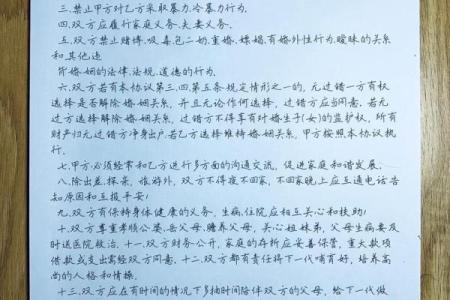 三.禁止甲方对乙方采取暴力.冷暴力行为.
四.双方应履行家庭义务.夫妻义务.
五.双方禁止赌博.吸毒.包二奶.重婚.嫖娼.有婚外性行为.暧昧的关系
和其他违
背婚.姻的法律.法规.道德的行为.
六.双方若有本协议第三.四.第五条规定情形之一的,无过错一方有权
选择是否解除婚.姻关系,并且无论作何选择,过错方应当同意.若无
过方选择解除婚.姻关系,过错方不得享有对婚生子(女)的监护权,所有
财产归无过错方净身出户.若乙方选择维持婚.姻关系,甲方按照本协议执
行.
七.甲方必须经常和乙方进行多方面的沟通交流,促进家庭和谐发展.
八.除出差.探亲,旅游外,双方不得夜不回家,不回家晚上应互通电话告
知原因和互报平安!
九.双方有保持身体健康的义务,生病.住院应相互关心和扶助!
十.双方尊重孝顺公婆.岳父母.赡养父母,关心姐妹弟,父母生病要及
时送医院救治.十一.双方财务公开,家庭的存折应妥善保管,重大款项
借款或支出需经双方同意.十二.双方都有责任将下一代哺育好,培养高
尚的人格和情操.
十三.双方应在有时间的情况下多抽时间陪伴双方的父母,给下一代做